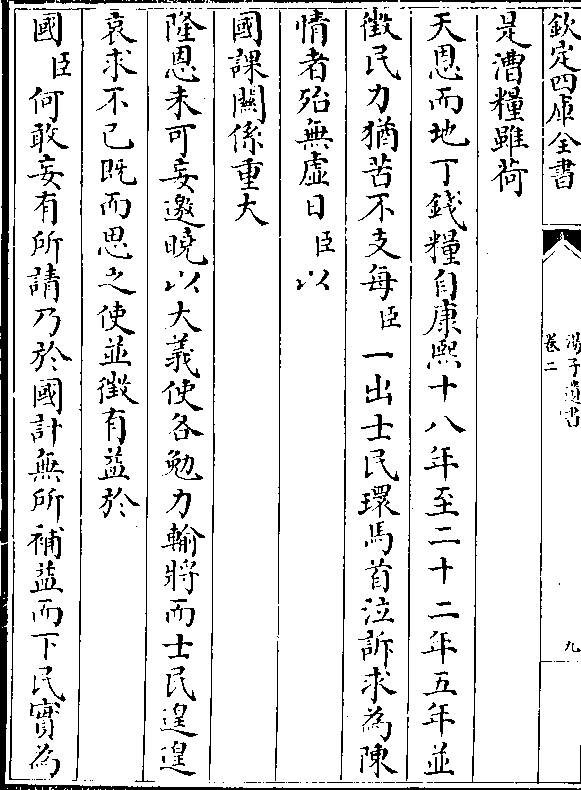 欽定四庫全書
湯子遺書
卷二
九
是漕糧雖荷
天恩而地丁錢糧自康熙十八年至二十二年五年並
徴民力猶苦不支每臣一出士民環馬首泣訴求為陳
情者殆無虛日臣以
國課關係重大
隆恩未可妄邀曉以大義使各勉力輸將而士民遑遑
哀求不已既而思之使並徴有益於
國臣何敢妄有所請乃於國計無所補益而下民實為